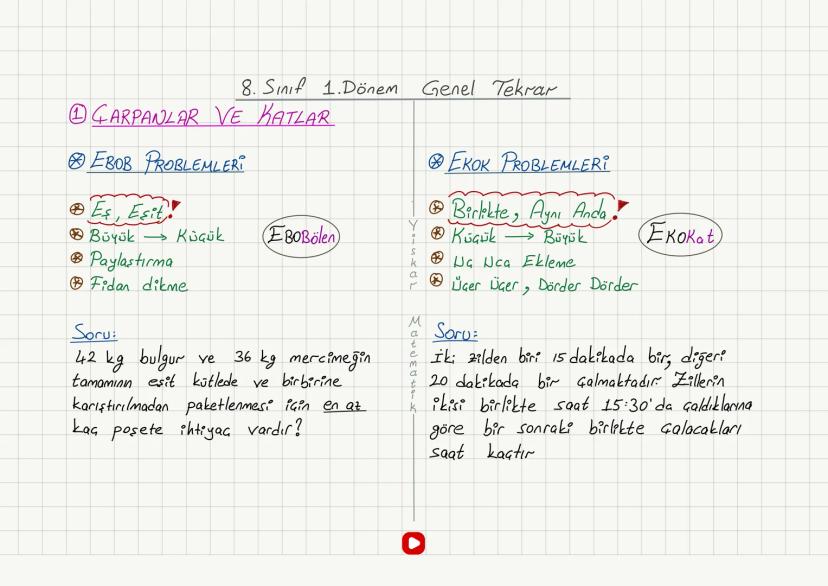 8. Sınıf 1.Dönem Genel Tekrar
① ÇARPANLAR VE KATLAR
EBOB PROBLEMLERİ
Eş, Eşit!
Büyük → Küçük
Paylaştırma
Fidan dikme
EBOBölen
Soru:
42 kg bulgur ve 36 kg mercimeğin
tamamının eşit kütlede ve birbirine
karıştırılmadan paketlenmesi için en az
kaç poşete ihtiyaç vardır?
Yıskar Matematik
EKOK PROBLEMLERİ
Birlikte, Aynı Anda!
Küçük → Büyük
Uç Uca Ekleme
Üçer Üçer, Dörder Dörder
EKOKat
Soru:
İki zilden biri 15 dakikada bir, diğeri
20 dakikada bir çalmaktadır Zillerin
ikisi birlikte saat 15:30'da çaldıklarına
göre bir sonraki birlikte çalacakları
saat kaçtır